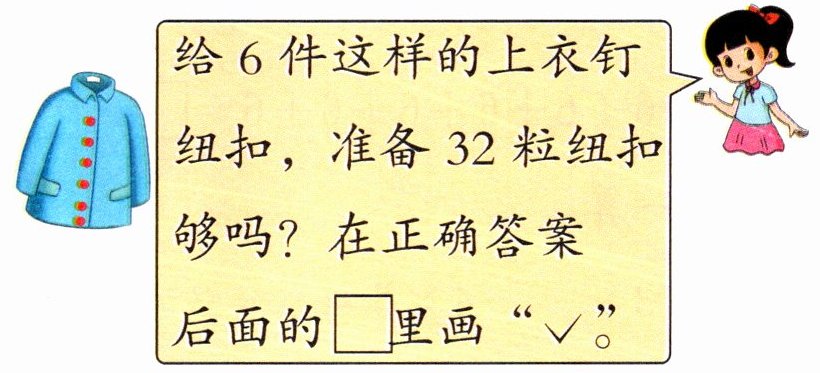 给 6 件这样的上衣钉
纽扣，准备 32 粒纽扣
够吗？在正确答案
后面的□里画“✓”。